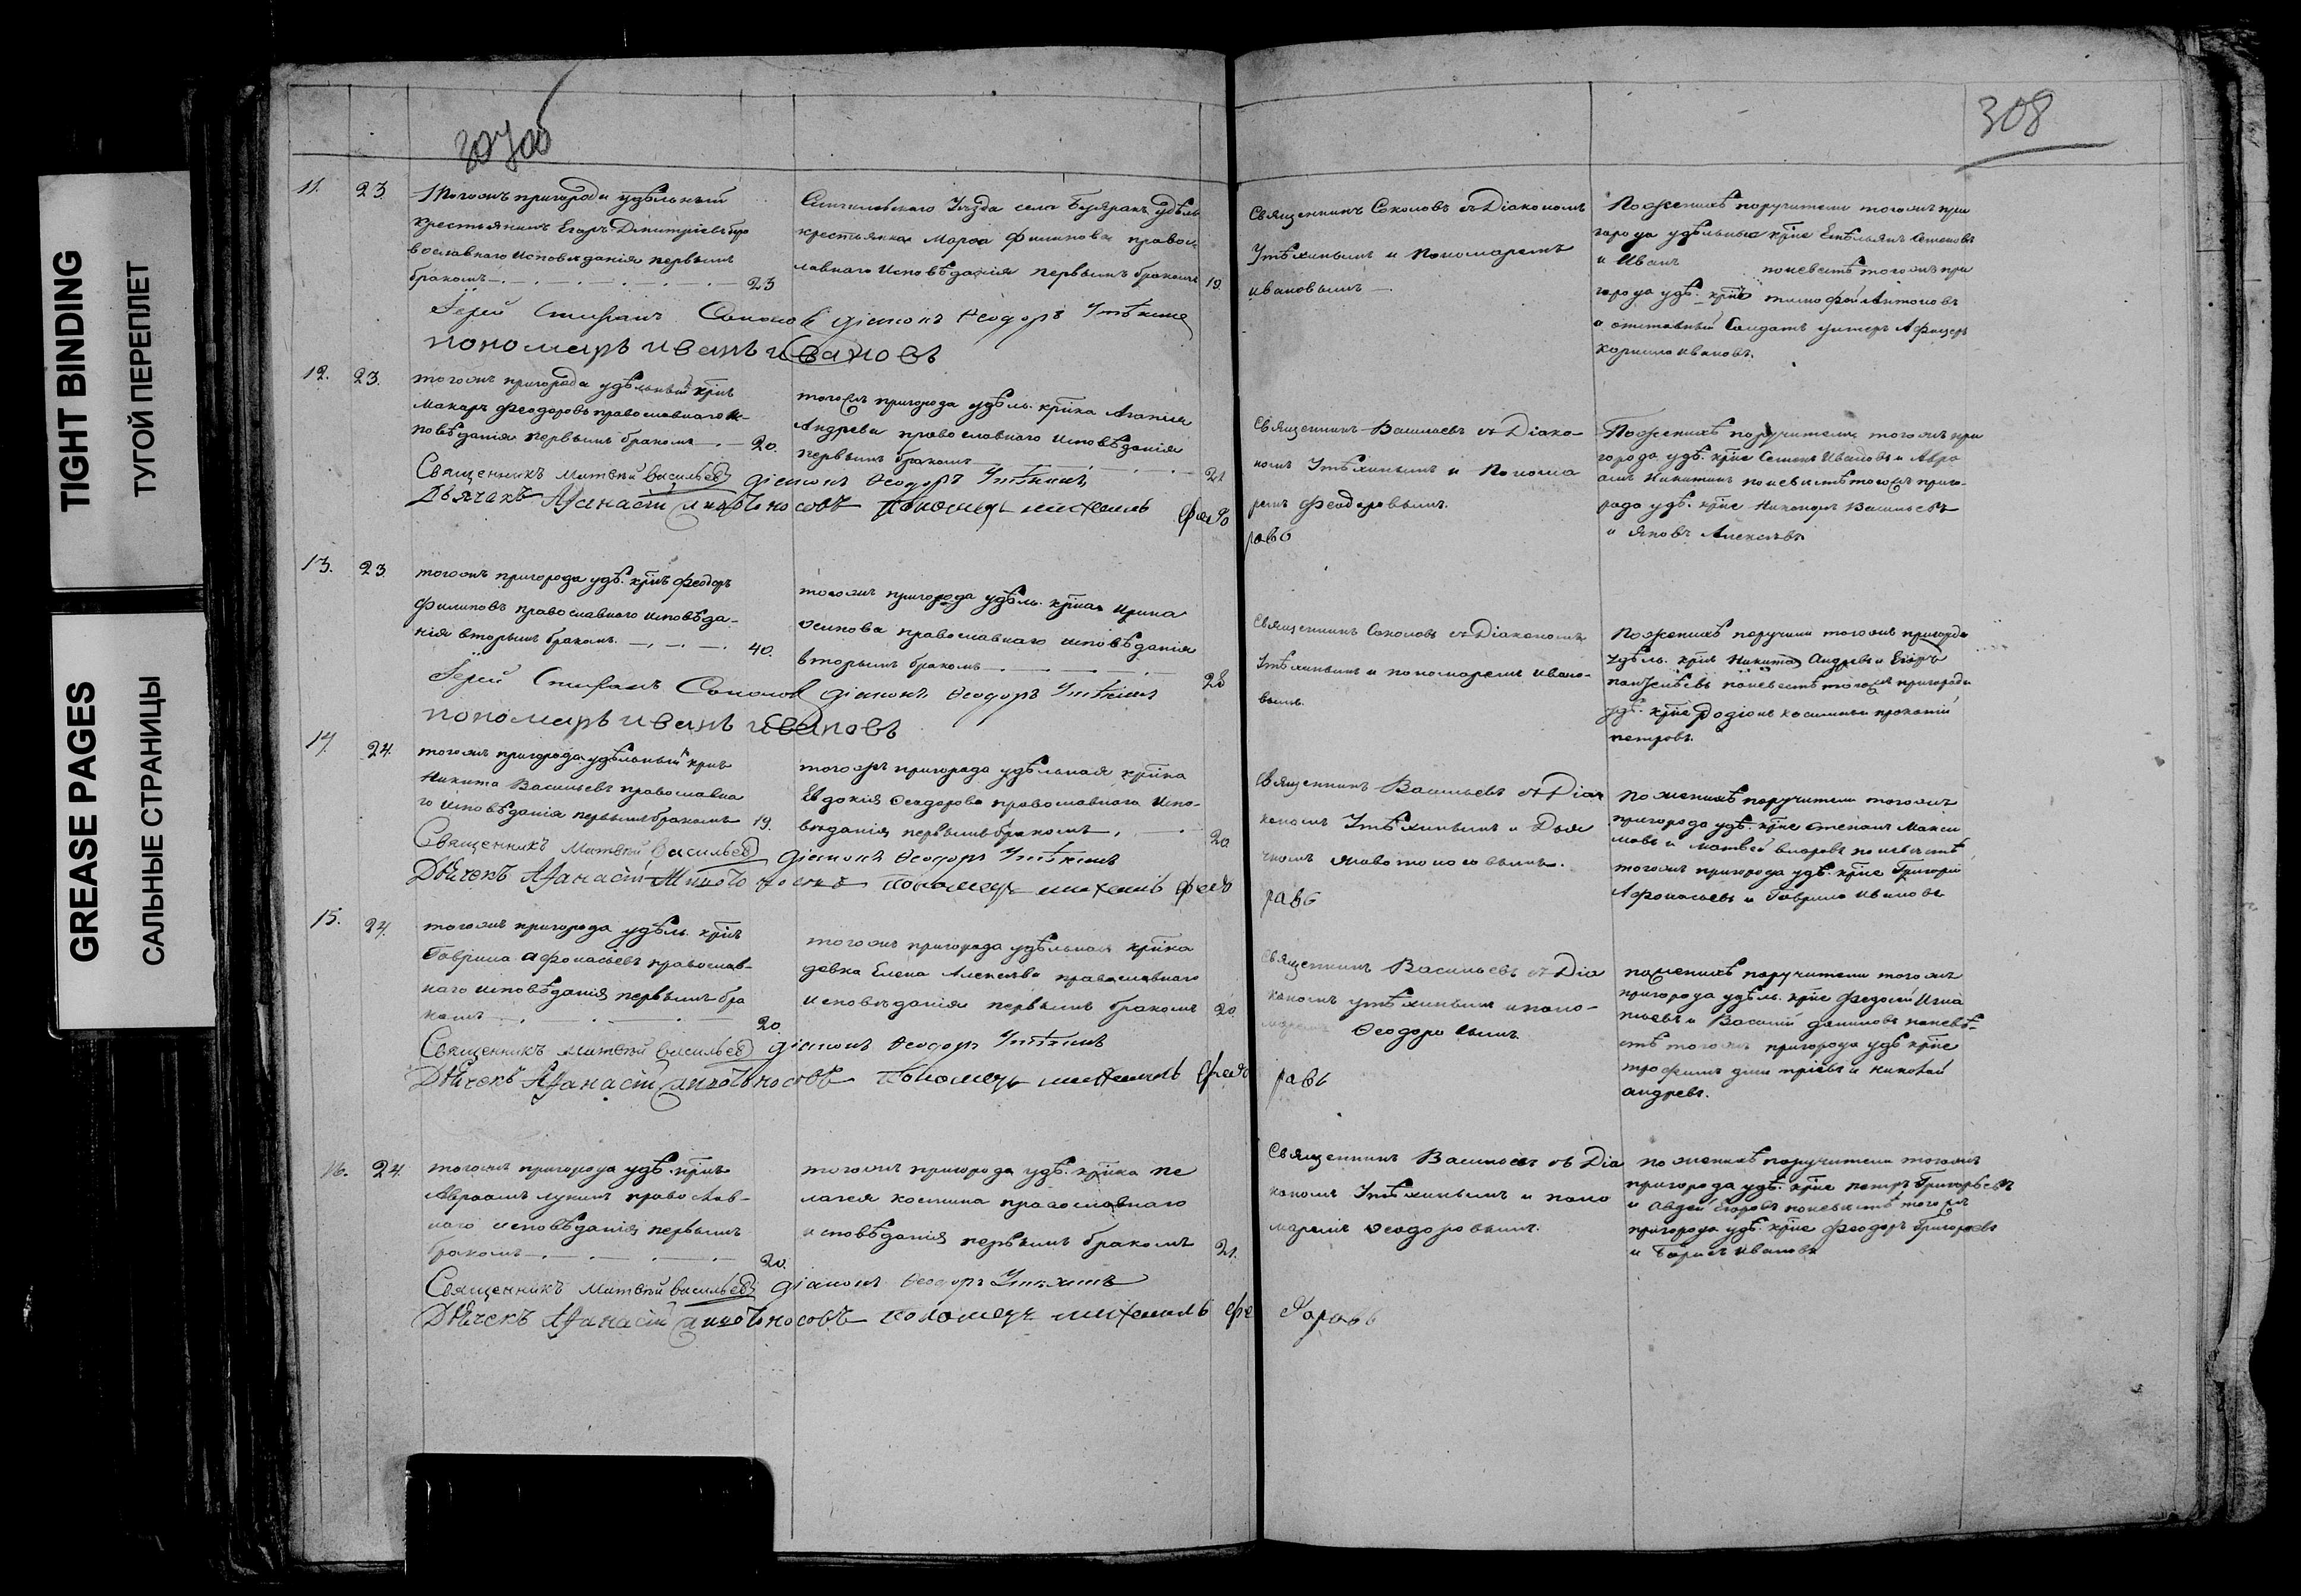 TIGHT BINDING
ТУГОЙ ПЕРЕПЛЕТ
GREASE PAGES
САЛЬНЫЕ СТРАНИЦЫ
307об
308
11. 23. Тогожъ пригорода удѣльный
крестьянинъ Егоръ Дмитріевъ пра
вославнаго исповѣданія первымъ
бракомъ 23
уѣзда села Буеракъ удѣль
крестьянка Марѳа Филипова правос
лавнаго исповѣданія первымъ бракомъ 19.
Священникъ Соколовъ съ Діакономъ
Утѣхинымъ и Пономаремъ
Ивановымъ
По женихѣ поручители тогожъ при
города удѣльные крѣне Емельянъ Семеновъ
и Иванъ по невестѣ тогожъ при
города удѣ. крѣне Тимофей Антоновъ
и отставный Салдатъ унтеръ Афицеръ
Корнило Ивановъ.
Іерей Стефанъ Соколовъ діаконъ Ѳеодоръ Утѣхинъ
пономаръ иванъ ивановъ
12. 23. тогожъ пригорода удѣльный крѣнъ
Макаръ Феодоровъ православнаго ис-
повѣданія первымъ бракомъ 20.
тогожъ пригорода удѣль. крѣнка Агапія
Андрева православнаго исповѣданія
первымъ бракомъ 21
Священникъ Васильевъ съ Діако-
номъ Утѣхинымъ и Понома
ремъ Феодоровымъ.
По женихѣ поручители тогожъ при
города удѣ. крѣне Семенъ Ивановъ и Авра
амъ Никитинъ по невѣстѣ тогожъ приго-
рода удѣ. крѣне Никаноръ Васильевъ
и Яковъ Алексѣевъ
Священникъ Матвѣй Васильевъ діаконъ Ѳеодоръ Утѣхинъ
Дьячекъ Афанасій пономарь михаилъ федо
ровъ
13. 23. тогожъ пригорода удѣ. крѣнъ Феодоръ
Филиповъ православнаго исповѣда-
нія вторымъ бракомъ. 40.
тогожъ пригорода удѣль. крѣнка Ирина
Осипова православнаго исповѣданія
вторымъ бракомъ 28
Священникъ Соколовъ съ Діакономъ
Утѣхинымъ и пономаремъ Ивано-
вымъ.
По женихѣ поручили тогожъ пригорода
удѣль. крѣне Никита Андревъ и Егоръ
по невестѣ тогожъ пригорода
удѣ. крѣне Родіонъ и прокопій
петровъ.
Іерей Стефанъ Соколовъ діаконъ Ѳеодоръ Утѣхинъ
пономаръ иванъ ивановъ
14. 24. тогожъ пригорода удѣльный крѣнъ
Никита Васильевъ православна
го исповѣданія первымъ бракомъ 19.
тогожъ пригорода удѣльная крѣнка
Евдокія Ѳеодорова православнаго испо-
вѣданія первымъ бракомъ 20.
Священникъ Васильевъ съ Діа
кономъ Утѣхинымъ и Дья
чкомъ
По женихѣ поручители тогожъ
пригорода удѣ. крѣне Степанъ Макси
мовъ и Матвей по невестѣ
тогожъ пригорода удѣ. крѣне Григорій
Афонасьевъ и Гаврила Ивановъ
Священникъ Матвѣй Васильевъ діаконъ Ѳеодоръ Утѣхинъ
Дьячекъ Афанасій пономарь михаилъ федо
ровъ
15. 24. тогожъ пригорода удѣль. крѣнъ
Гаврила Афонасьевъ православ-
наго исповѣданія первымъ бра
комъ 20.
тогожъ пригорода удѣльная крѣнка
девка Елена Алексѣева православнаго
исповѣданія первымъ бракомъ 20.
Священникъ Васильевъ съ Діа
кономъ Утѣхинымъ и поно-
маремъ Ѳеодоровымъ
по женихѣ поручители тогожъ
пригорода удѣль. крѣне Федосѣй Игна
тьевъ и Василій даниловъ по невѣ-
стѣ тогожъ пригорода удѣ крѣне
трофимъ дмитріевъ и николай
андревъ.
Священникъ Матвѣй Васильевъ діаконъ Ѳеодоръ Утѣхинъ
Дьячекъ Афанасій пономарь михаилъ федо
ровъ
16. 24. тогожъ пригорода удѣ. крѣнъ
Авраамъ лукинъ православ-
наго исповѣданія первымъ
бракомъ 20.
тогожъ пригорода удѣ. крѣнка Пе
лагея костина православнаго
исповѣданія первымъ бракомъ 21.
Священникъ Васильевъ съ Діа
кономъ Утѣхинымъ и поно
маремъ Ѳеодоровымъ.
по женихѣ поручители тогожъ
пригорода удѣ. крѣне петръ Григорьевъ
и Авдей Егоровъ по невестѣ тогожъ
пригорода удѣ. крѣне Феодоръ Григоревъ
и Борисъ Ивановъ
Священникъ Матвѣй Васильевъ діаконъ Ѳеодоръ Утѣхинъ
Дьячекъ Афанасій пономарь михаилъ фе
доровъ